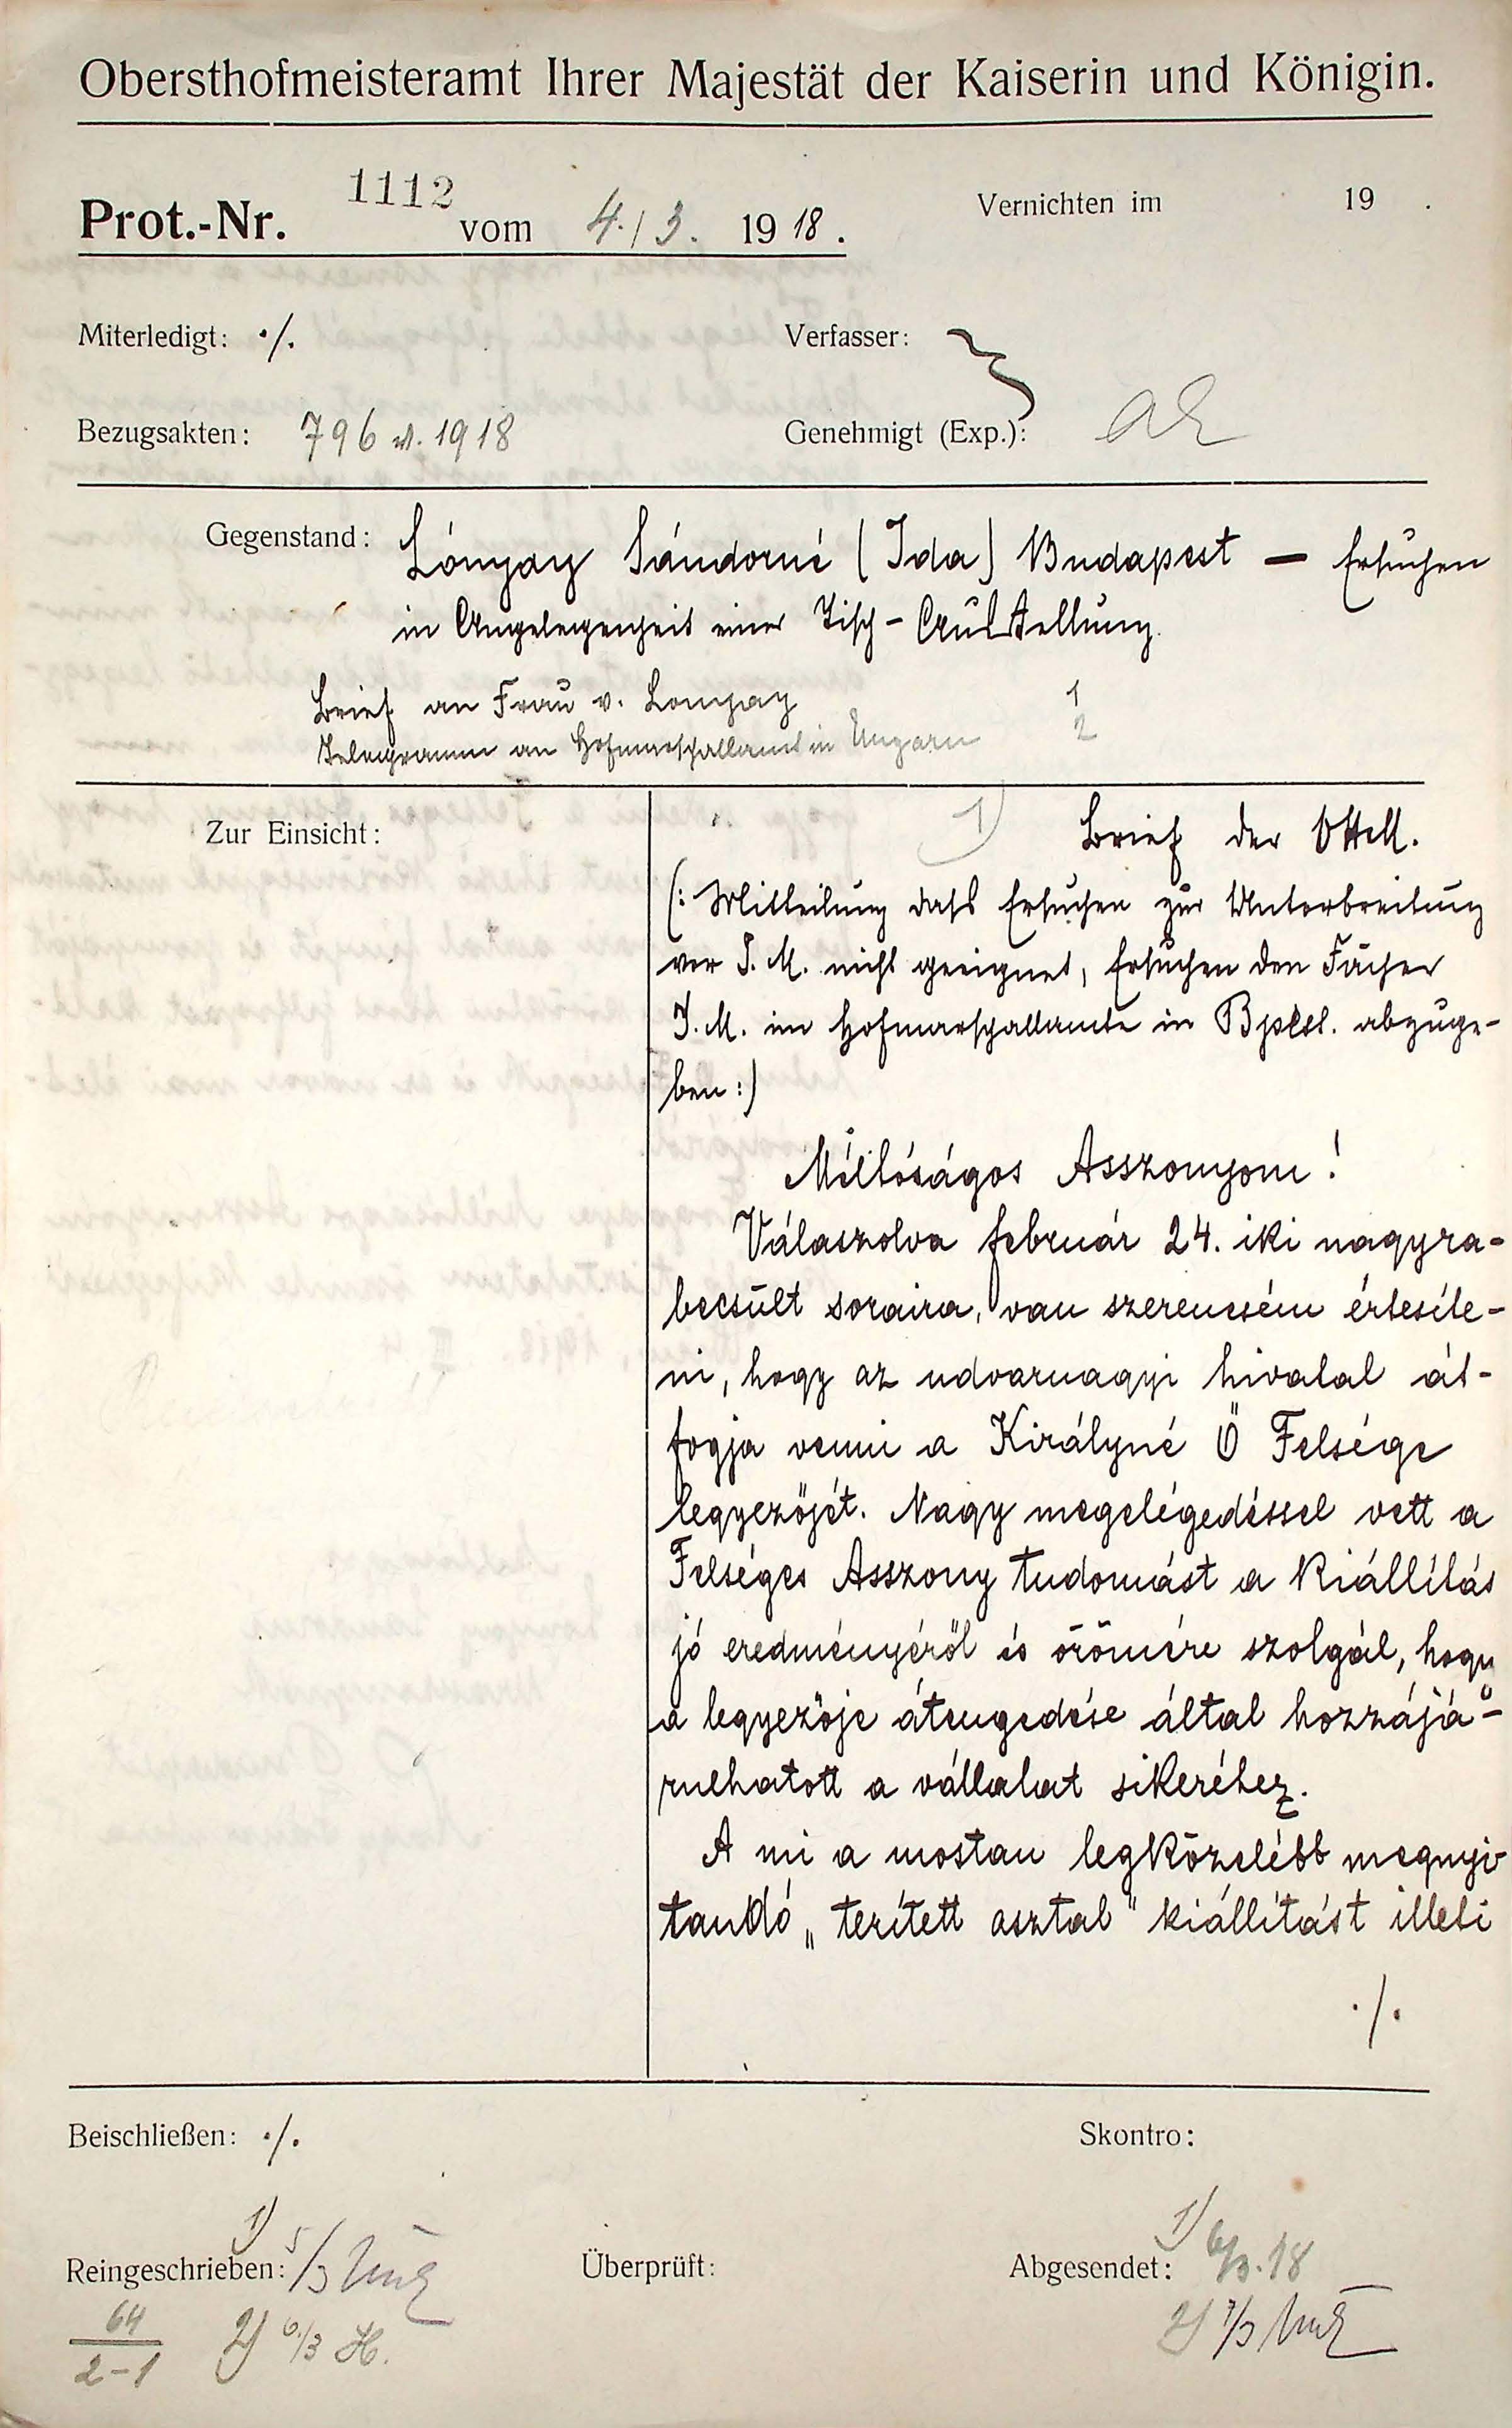 Obersthofmeisteramt Ihrer Majestät der Kaiserin und Königin.
Prot.-Nr. 1112 vom 4./3. 1918.
Vernichten im 19 .
Miterledigt: ./.
Verfasser:
Bezugsakten: 796 v. 1918
Genehmigt (Exp.):
Gegenstand: Lónyay Sándorné (Ida) Budapest — Ersuchen
in Angelegenheit einer Tisch-Ausstellung.
Brief an Frau v. Lonyay 1
Telegramm an Hofmarschallamt in Ungarn 2
Zur Einsicht:
1) Brief der
(: Mitteilung dass Ersuchen zur Unterbreitung
vor I. M. nicht geeignet, Ersuchen den Fächer
I. M. im Hofmarschallamte in Bpest. abzuge-
ben :)
Méltóságos Asszonyom!
Válaszolva február 24. iki nagyra-
becsült soraira, van szerencsém értesíte-
ni, hogy az udvarnagyi hivatal át-
fogja venni a Királyné Ő Felsége
legyezőjét. Nagy megelégedéssel vett a
Felséges Asszony tudomást a kiállítás
jó eredményéről és örömére szolgál, hogy
a legyezője átengedése által hozzájá-
rulhatott a vállalat sikeréhez.
A mi a mostan legközelébb megnyi-
tandó „terített asztal" kiállítást illeti
./.
Beischließen: ./.
Skontro:
Reingeschrieben: 1) 5/3
Überprüft:
Abgesendet: 1) 6/3. 18
64
2-1
2) 6./3 H.
2) 7/3